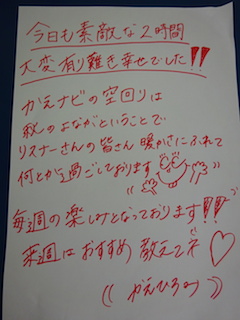 今日も素敵な2時間
大変有り難き幸せでした!!
かえナビの空回りは
私のよながということで
リスナーさんの皆さん暖かさにふれて
何とか過ごしております
毎週の楽しみとなっております!!
来週はおすすめ教えてネ♡
((かえひろみ))